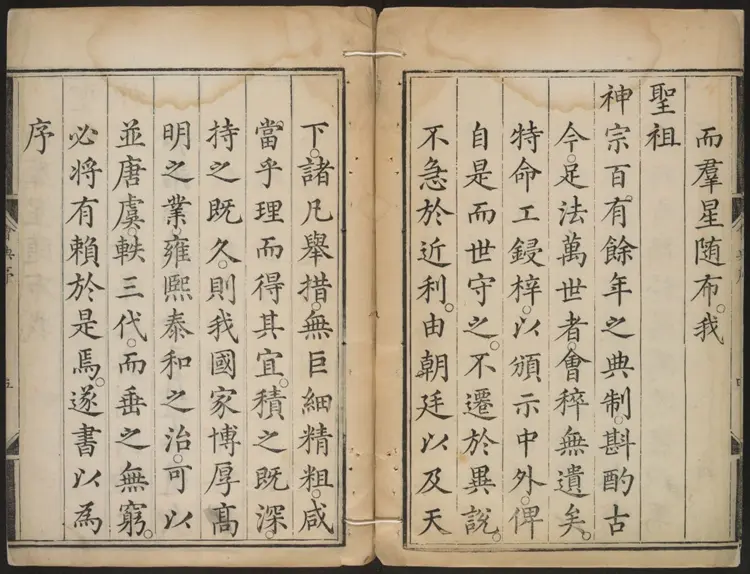 而羣星随布。我
聖祖
神宗百有餘年之典制。斟酌古
今。足法萬世者。會稡無遺矣。
特命工鋟梓。以頒示中外。俾
自是而世守之。不遷於異說。
不急於近利。由朝廷以及天
下。諸凡舉措。無巨細精粗。咸
當乎理而得其宜。積之既深。
持之既久。則我國家博厚高
明之業。雍熙泰和之治。可以
並唐虞。軼三代。而垂之無窮。
必将有賴於是焉。遂書以為
序